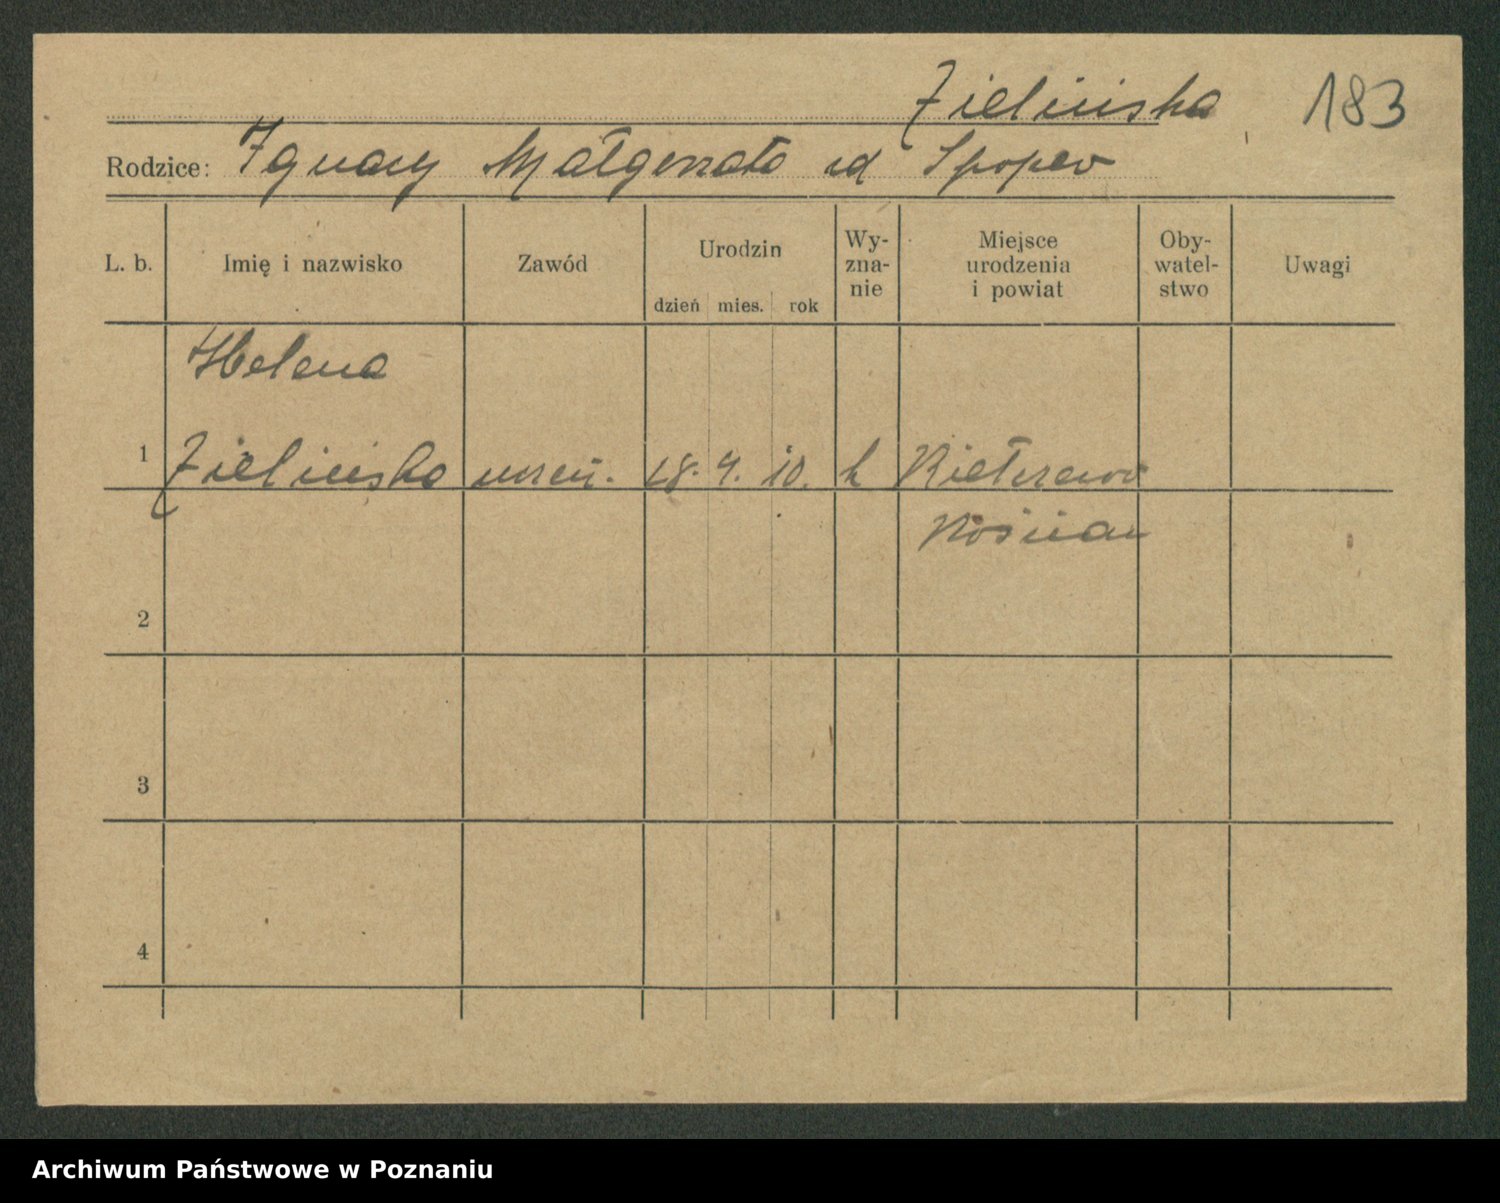 Zielińska 183
Rodzice: Ignacy Małgorzata zd
L. b. Imię i nazwisko Zawód Urodzin dzień mies. rok Wy-zna-nie Miejsce urodzenia i powiat Oby-watel-stwo Uwagi
Helena
1 Zielińska uczeń. 10. k
2
3
4
Archiwum Państwowe w Poznaniu